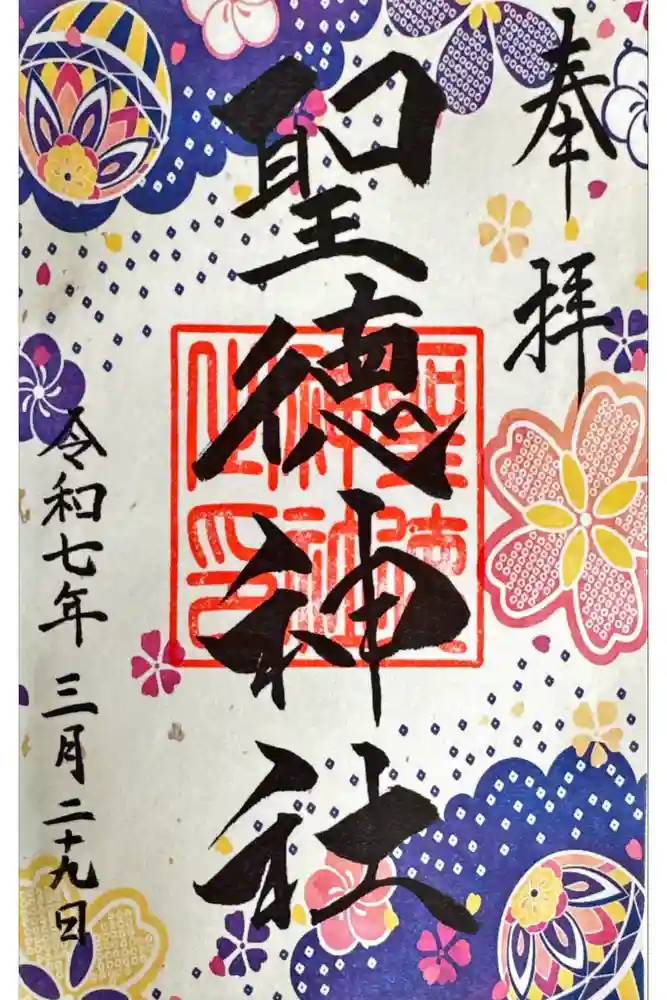 奉拝
聖徳神社
聖徳神社之印
令和七年三月二十九日